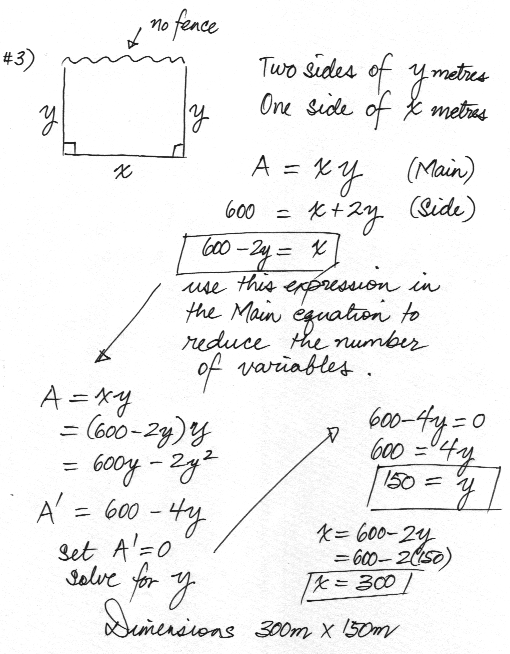 no fence
#3)
y
y
x
Two sides of y metres
One side of x metres
A = xy (Main)
600 = x+2y (Side)
600-2y = x
use this expression in
the Main equation to
reduce the number
of variables.
A = xy
= (600-2y)y
= 600y - 2y²
A' = 600 - 4y
set A'=0
solve for y
600-4y=0
600 = 4y
150 = y
x = 600-2y
= 600-2(150)
x = 300
Dimensions 300m x 150m